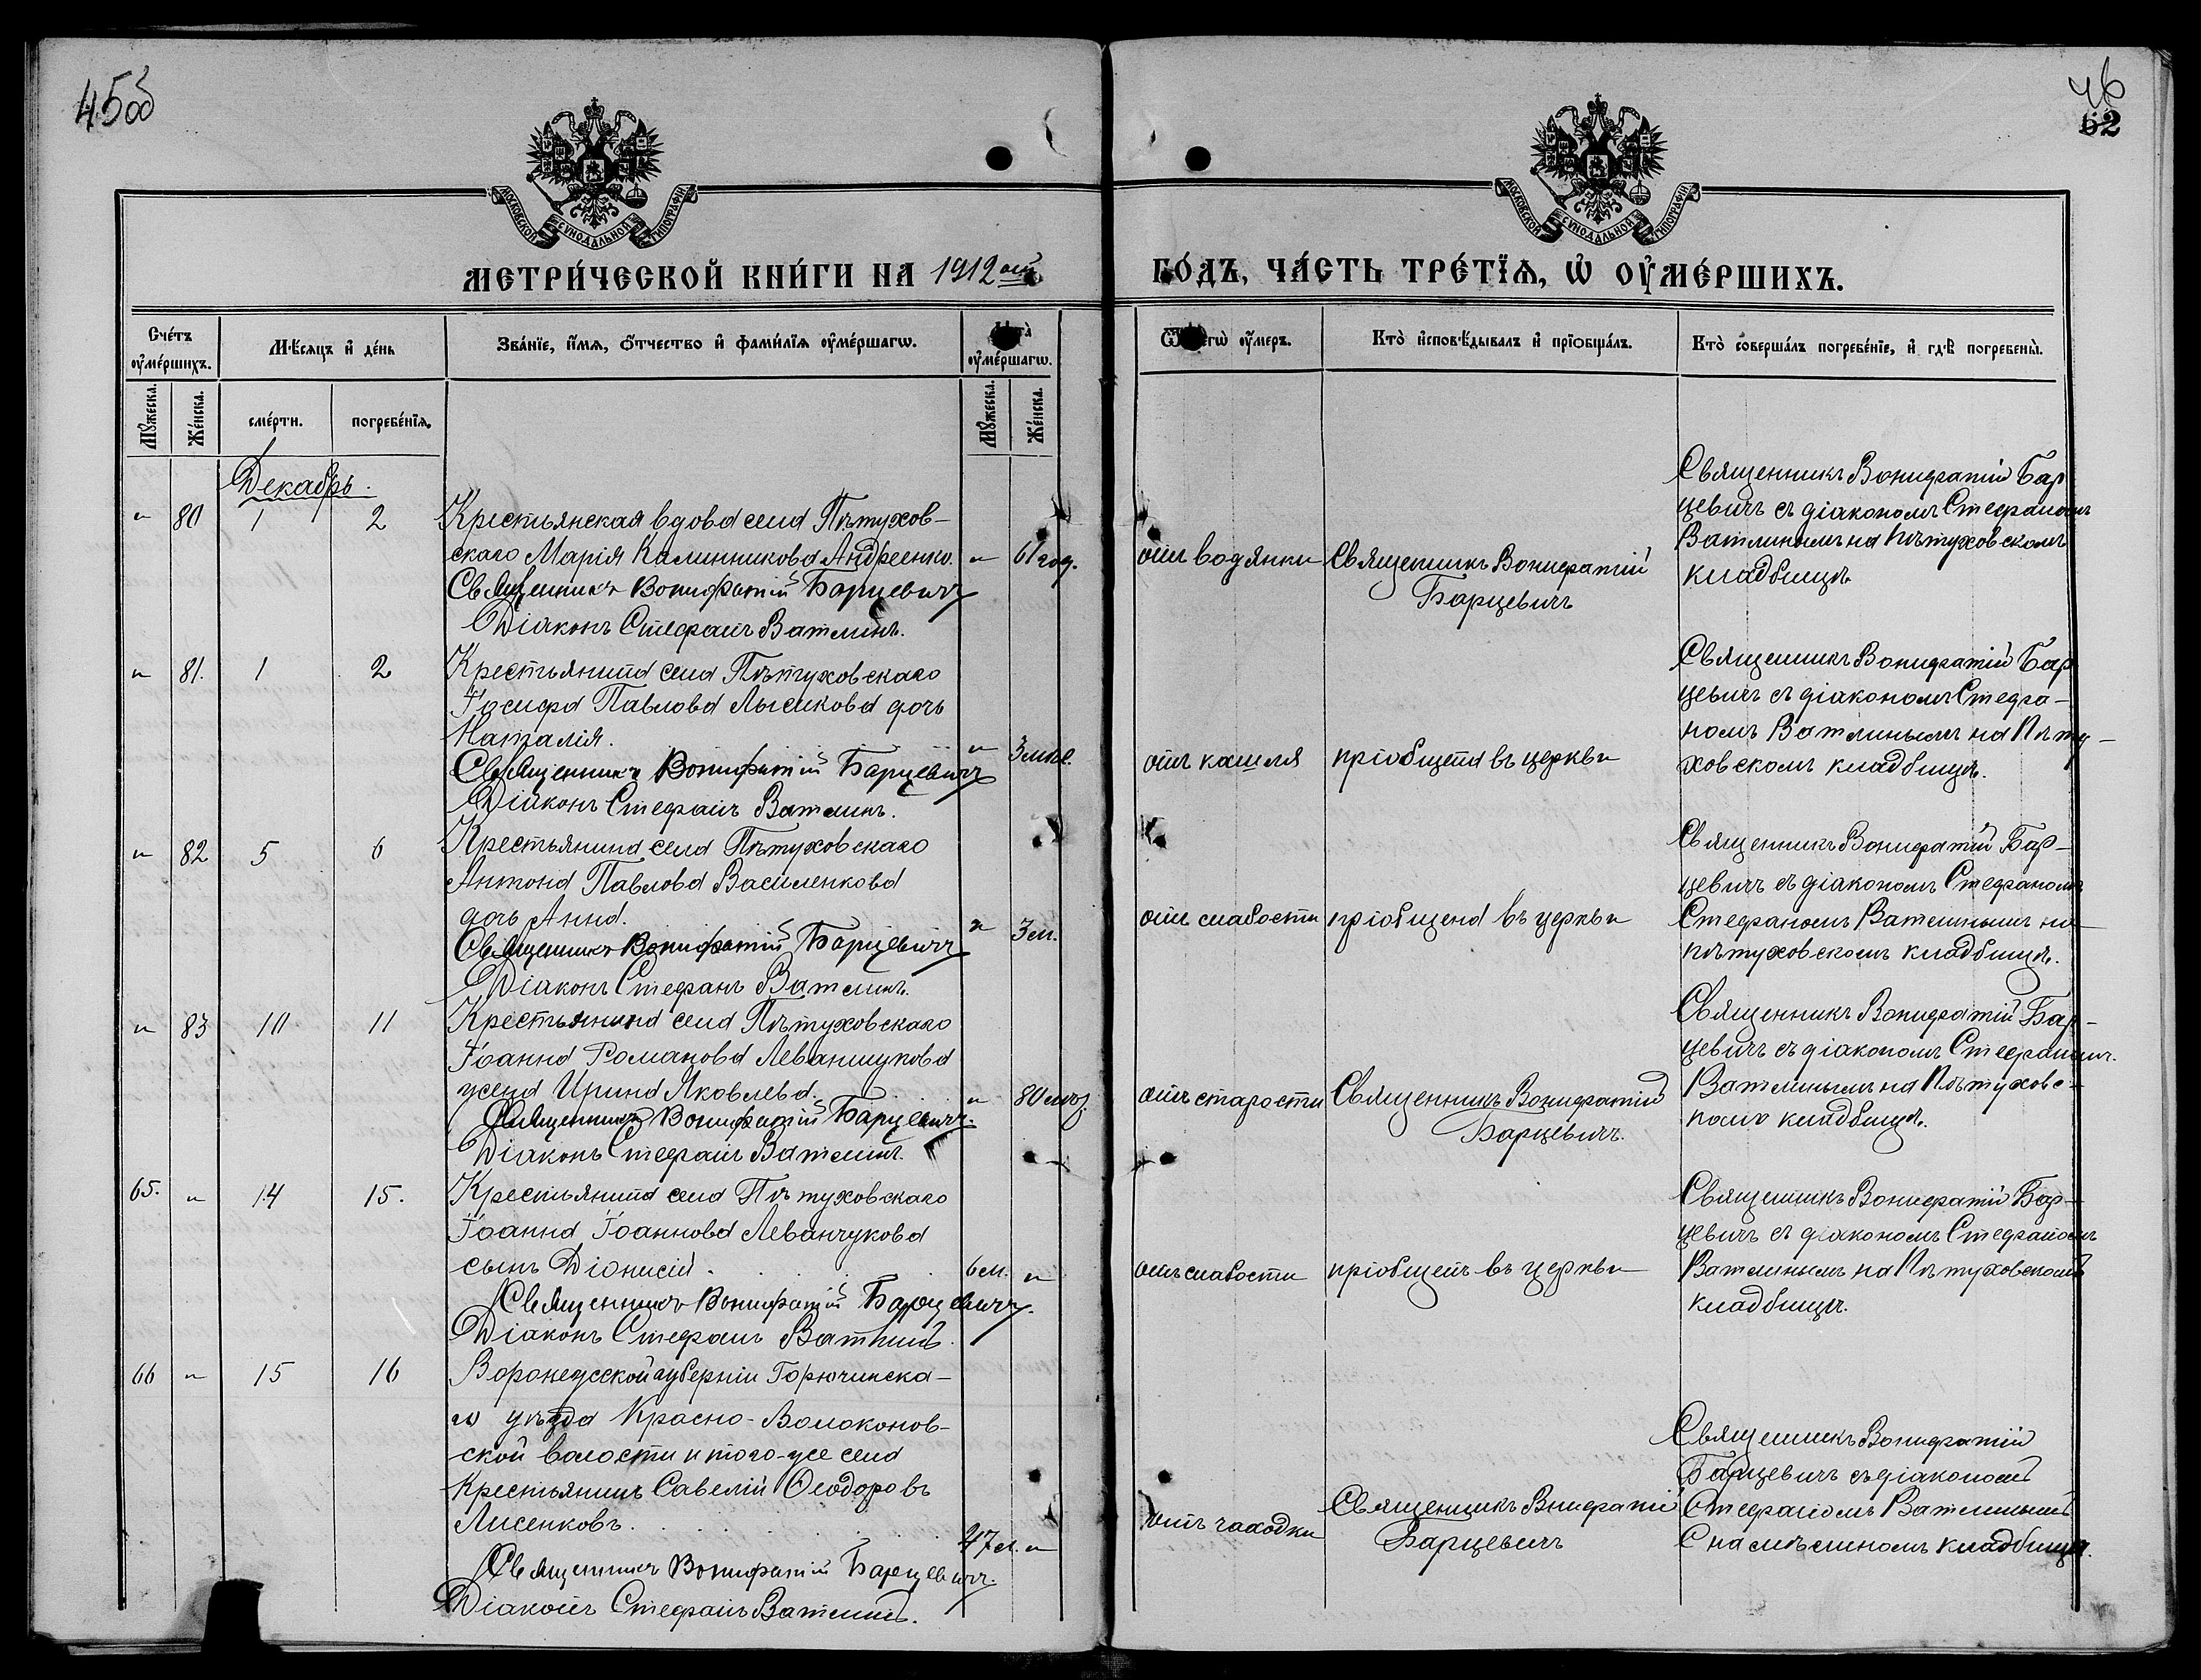 45 об
46
62
МОСКОВСКОЙ СѴНОДАЛЬНОЙ ТИПОГРАФІИ
МОСКОВСКОЙ СѴНОДАЛЬНОЙ ТИПОГРАФІИ
МЕТРИ́ЧЕСКОЙ КНИ́ГИ НА 1912 ый
ГО́ДЪ, ЧА́СТЬ ТРЕ́ТЇѦ, Ѡ҆ ОУ҆МЕ́РШИХЪ.
Сче́тъ оу҆ме́ршихъ.
Мѣ́сяцъ и҆ де́нь
Зва́нїе, и҆́мѧ, ѻ҆́тчество и҆ фами́лїѧ оу҆ме́ршагѡ.
оу҆ме́ршагѡ.
оу҆́меръ.
Кто̀ и҆сповѣ́дывалъ и҆ прїѡбща́лъ.
Кто̀ соверша́лъ погребе́нїе, и҆ гдѣ̀ погребены̀.
Мꙋ́жеска.
Же́нска.
сме́рти.
погребе́нїѧ.
Мꙋ́жеска.
Же́нска.
Декабрь.
„ 80 1 2
Крестьянская вдова села Пѣтухов-
скаго Марія Калинникова Андреенко. „ 61 год.
Священникъ Вонифатій Барцевичъ
Діаконъ Стефанъ Ватлинъ.
отъ водянки
Священникъ Вонифатій
Барцевичъ
Священникъ Вонифатій Бар
цевичъ съ діакономъ Стефаномъ
Ватлинымъ на Пѣтуховскомъ
кладбищѣ.
„ 81. 1 2
Крестьянина села Пѣтуховскаго
Іосифа Павлова Лысикова дочь
Наталія. „ 3 мѣс.
Священникъ Вонифатій Барцевичъ
Діаконъ Стефанъ Ватлинъ.
отъ кашля
пріобщена въ церкви
Священникъ Вонифатій Бар
цевичъ съ діакономъ Стефа-
номъ Ватлинымъ на Пѣту-
ховскомъ кладбищѣ.
„ 82 5 6
Крестьянина села Пѣтуховскаго
Антона Павлова Василенкова
дочь Анна. „ 3 м.
Священникъ Вонифатій Барцевичъ
Діаконъ Стефанъ Ватлинъ.
отъ слабости
пріобщена въ церкви
Священникъ Вонифатій Бар-
цевичъ съ діакономъ Стефаномъ
Стефаномъ Ватлинымъ на
пѣтуховскомъ кладбищѣ.
„ 83 10 11
Крестьянина села Пѣтуховскаго
Іоанна Романова Леванчукова
жена Ирина Яковлева. „ 80
Священникъ Вонифатій Барцевичъ.
Діаконъ Стефанъ Ватлинъ.
отъ старости
Священникъ Вонифатій
Барцевичъ.
Священникъ Вонифатій Бар-
цевичъ съ діакономъ Стефаномъ.
Ватлинымъ на Пѣтуховс-
комъ кладбищѣ.
65. „ 14 15.
Крестьянина села Пѣтуховскаго
Іоанна Іоаннова Леванчукова
сынъ Діонисій. 6 м. „
Священникъ Вонифатій Барцевичъ.
Діаконъ Стефанъ Ватлинъ.
отъ слабости
пріобщенъ въ церкви
Священникъ Вонифатій Бар-
цевичъ съ діакономъ Стефаномъ
Ватлинымъ на Пѣтуховскомъ
кладбищѣ.
66 „ 15 16
Воронежской губерніи Бирючинска-
го уѣзда Красно-Волоконов-
ской волости и того-же села
Крестьянинъ Савелій Ѳеодоровъ
Лисенковъ. 47 л. „
Священникъ Вонифатій Барцевичъ.
Діаконъ Стефанъ Ватлинъ.
отъ чахотки
Священникъ Внифатій
Барцевичъ
Священникъ Вонифатій
Барцевичъ съ діакономъ
Стефаномъ Ватлинымъ
кладбищѣ.